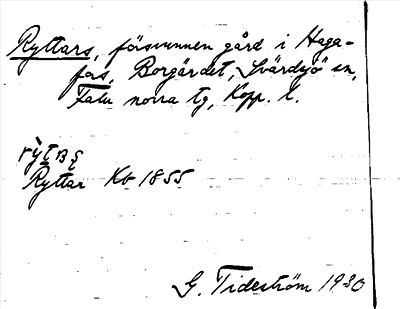 Ryttars, försvunnen gård i Haga-
fors, Borgärdet, Svärdsjö sn,
Falu norra tg, Kopp. l.
Ryttar Kb 1855
G. Tideström 1930